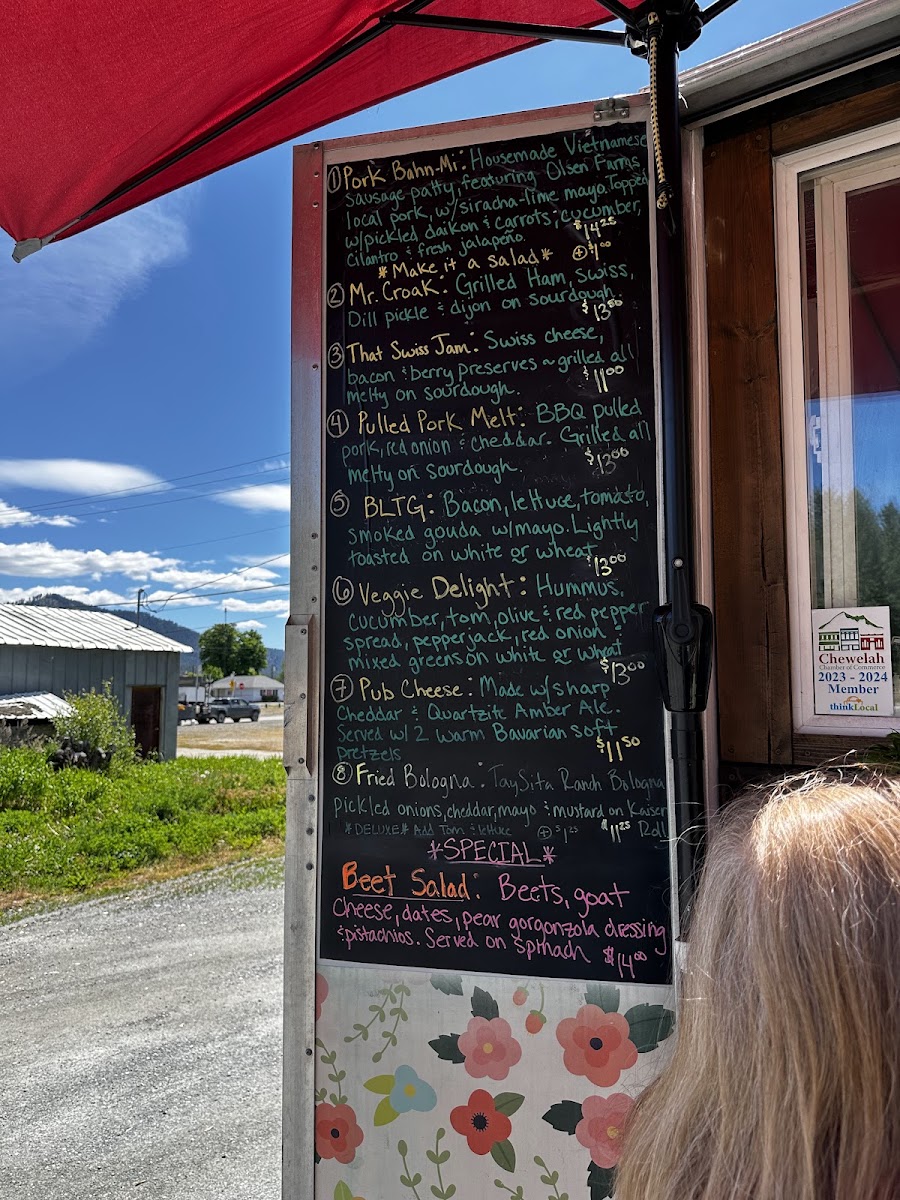 ① Pork Bahn-Mi: Housemade Vietnamese
Sausage patty, featuring Olsen Farms
local pork, w/ siracha-lime mayo. Topped
w/ pickled daikon & carrots, cucumber,
Cilantro & fresh jalapeño. $14.25
*Make it a salad* ⊕ $1.00
② Mr. Croak: Grilled Ham, Swiss,
Dill pickle & dijon on sourdough.
$13.50
③ That Swiss Jam: Swiss cheese,
bacon & berry preserves ~ grilled all
melty on sourdough. $11.00
④ Pulled Pork Melt: BBQ pulled
pork, red onion & cheddar. Grilled all
melty on sourdough. $13.00
⑤ BLTG: Bacon, lettuce, tomato,
smoked gouda w/mayo. Lightly
toasted on white or wheat
$13.00
⑥ Veggie Delight: Hummus,
cucumber, tom, olive & red pepper
spread, pepperjack, red onion
mixed greens on white or wheat
$13.00
⑦ Pub Cheese: Made w/ sharp
Cheddar & Quartzite Amber Ale.
Served w/ 2 warm Bavarian soft
pretzels $11.50
⑧ Fried Bologna: TaySita Ranch Bologna
pickled onions, cheddar, mayo & mustard on Kaiser
*DELUXE* Add Tom & lettuce ⊕ $1.25 $11.25 Roll
*SPECIAL*
Beet Salad: Beets, goat
Cheese, dates, pear gorgonzola dressing
& pistachios. Served on Spinach $14.00
Chewelah
Chamber of Commerce
2023 - 2024
Member
thinkLocal